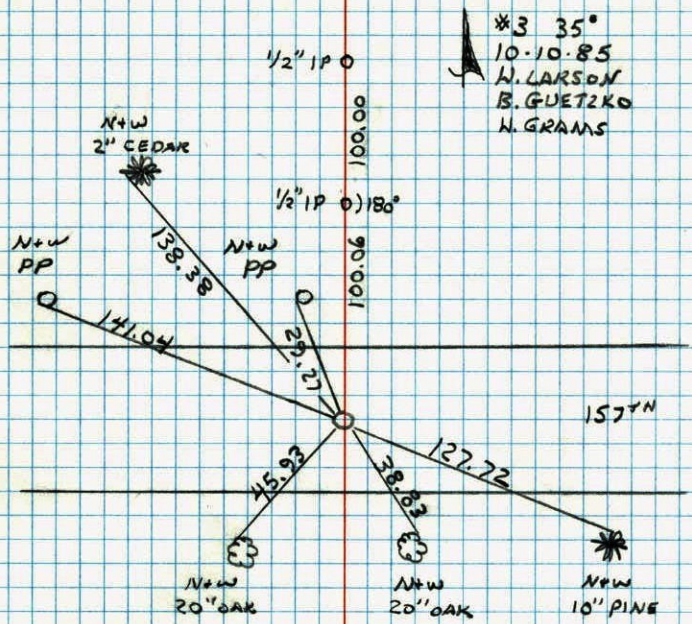 #3 35°
10-10-85
W. LARSON
B. GUETZKO
W. GRAMS
1/2" IP
100.00
N+W
2" CEDAR
1/2" IP
180°
N+W
PP
138.38
N+W
PP
100.06
141.04
29.27
157TH
127.72
45.93
38.83
N+W
20" OAK
N+W
20" OAK
N+W
10" PINE